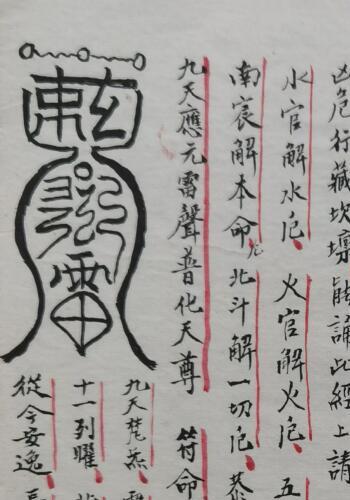 凶危行藏坎壈能誦此經上請
水官解水厄火官解火厄五
南宸解本命厄北斗解一切厄恭
九天應元雷聲普化天尊
符命
九天梵炁雷
十一列曜
從今安逸